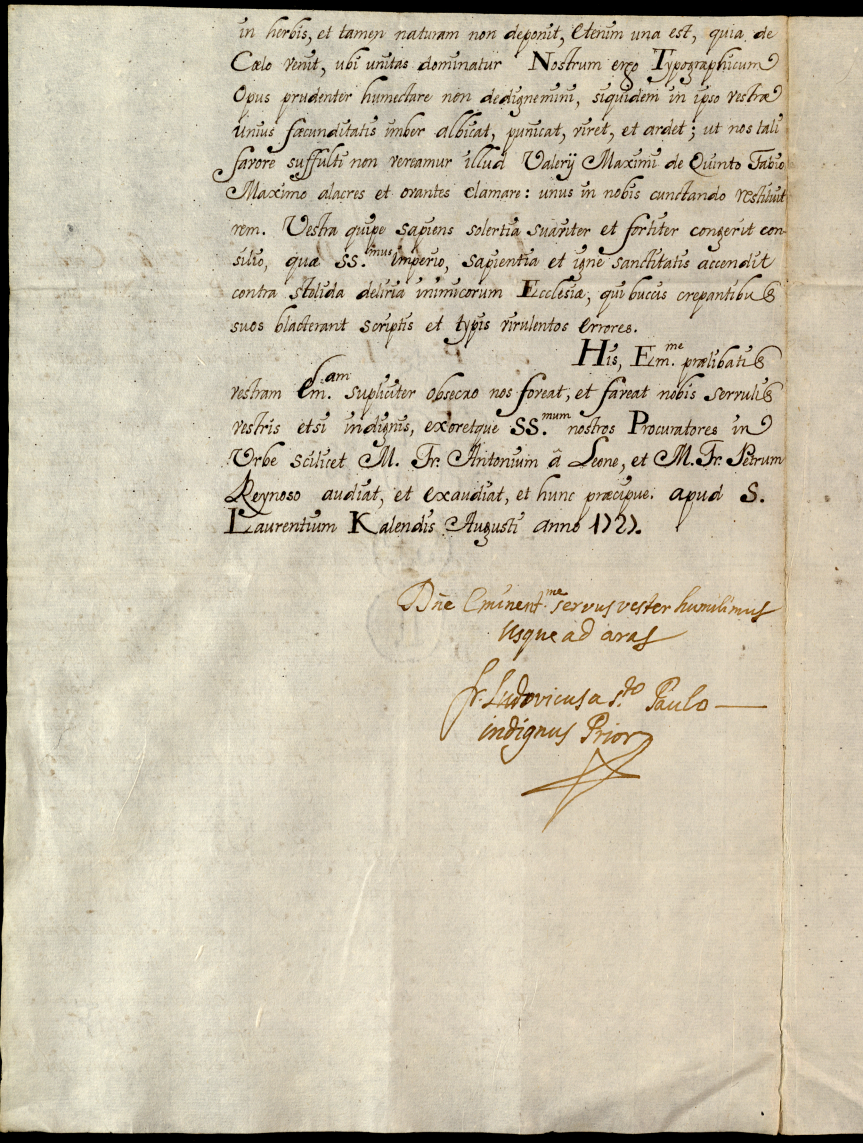 in herbis, et tamen naturam non deponit, etenim una est, quia de
Cælo venit, ubi unitas dominatur Nostrum ergo Typographicum
Opus prudenter humectare non dedignemini, siquidem in ipso vestræ
unius fæcunditatis imber albicat, punicat, viret, et ardet; ut nos tali
favore suffulti non vereamur illud Valerij Maximi de Quinto Fabio
Maximo alacres et ovantes clamare: unus in nobis cunctando restituit
rem. Vestra quipe sapiens solertia suaviter et fortiter congerit con-
silio, quæ SS.mus imperio, sapientia et igne sanctitatis accendit
contra stolida deliria inimicorum Ecclesiæ, qui buccis crepantibus
suos blacterant scriptis et typis virulentos errores.
His, Em.me prælibatis
vestram Em.am supliciter obsecro nos foveat, et faveat nobis servulis
vestris etsi indignis, exoretque SS.mum nostros Procuratores in
Urbe scilicet M. Fr. Antonium â Leone, et M. Fr. Petrum
Reynoso audiat, et exaudiat, et hunc præcipue. apud S.
Laurentium Kalendis Augusti anno 1727.
Dñe Eminent.me servus vester humilimus
usque ad aras
fr. Ludovicus a s.to Paulo
indignus Prior